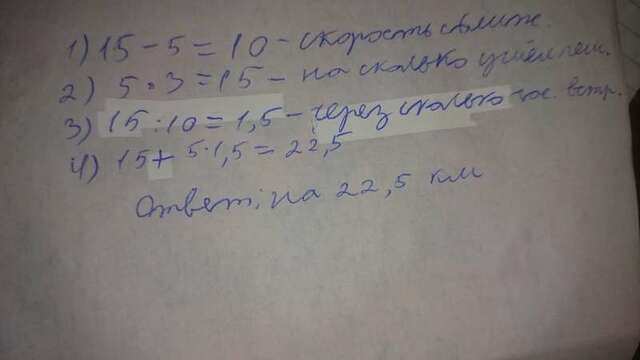 1) 15 - 5 = 10 - скорость сближ.
2) 5 · 3 = 15 - на сколько ушёл пеш.
3) 15 : 10 = 1,5 - через сколько час. встр.
4) 15 + 5·1,5 = 22,5
Ответ: на 22,5 км